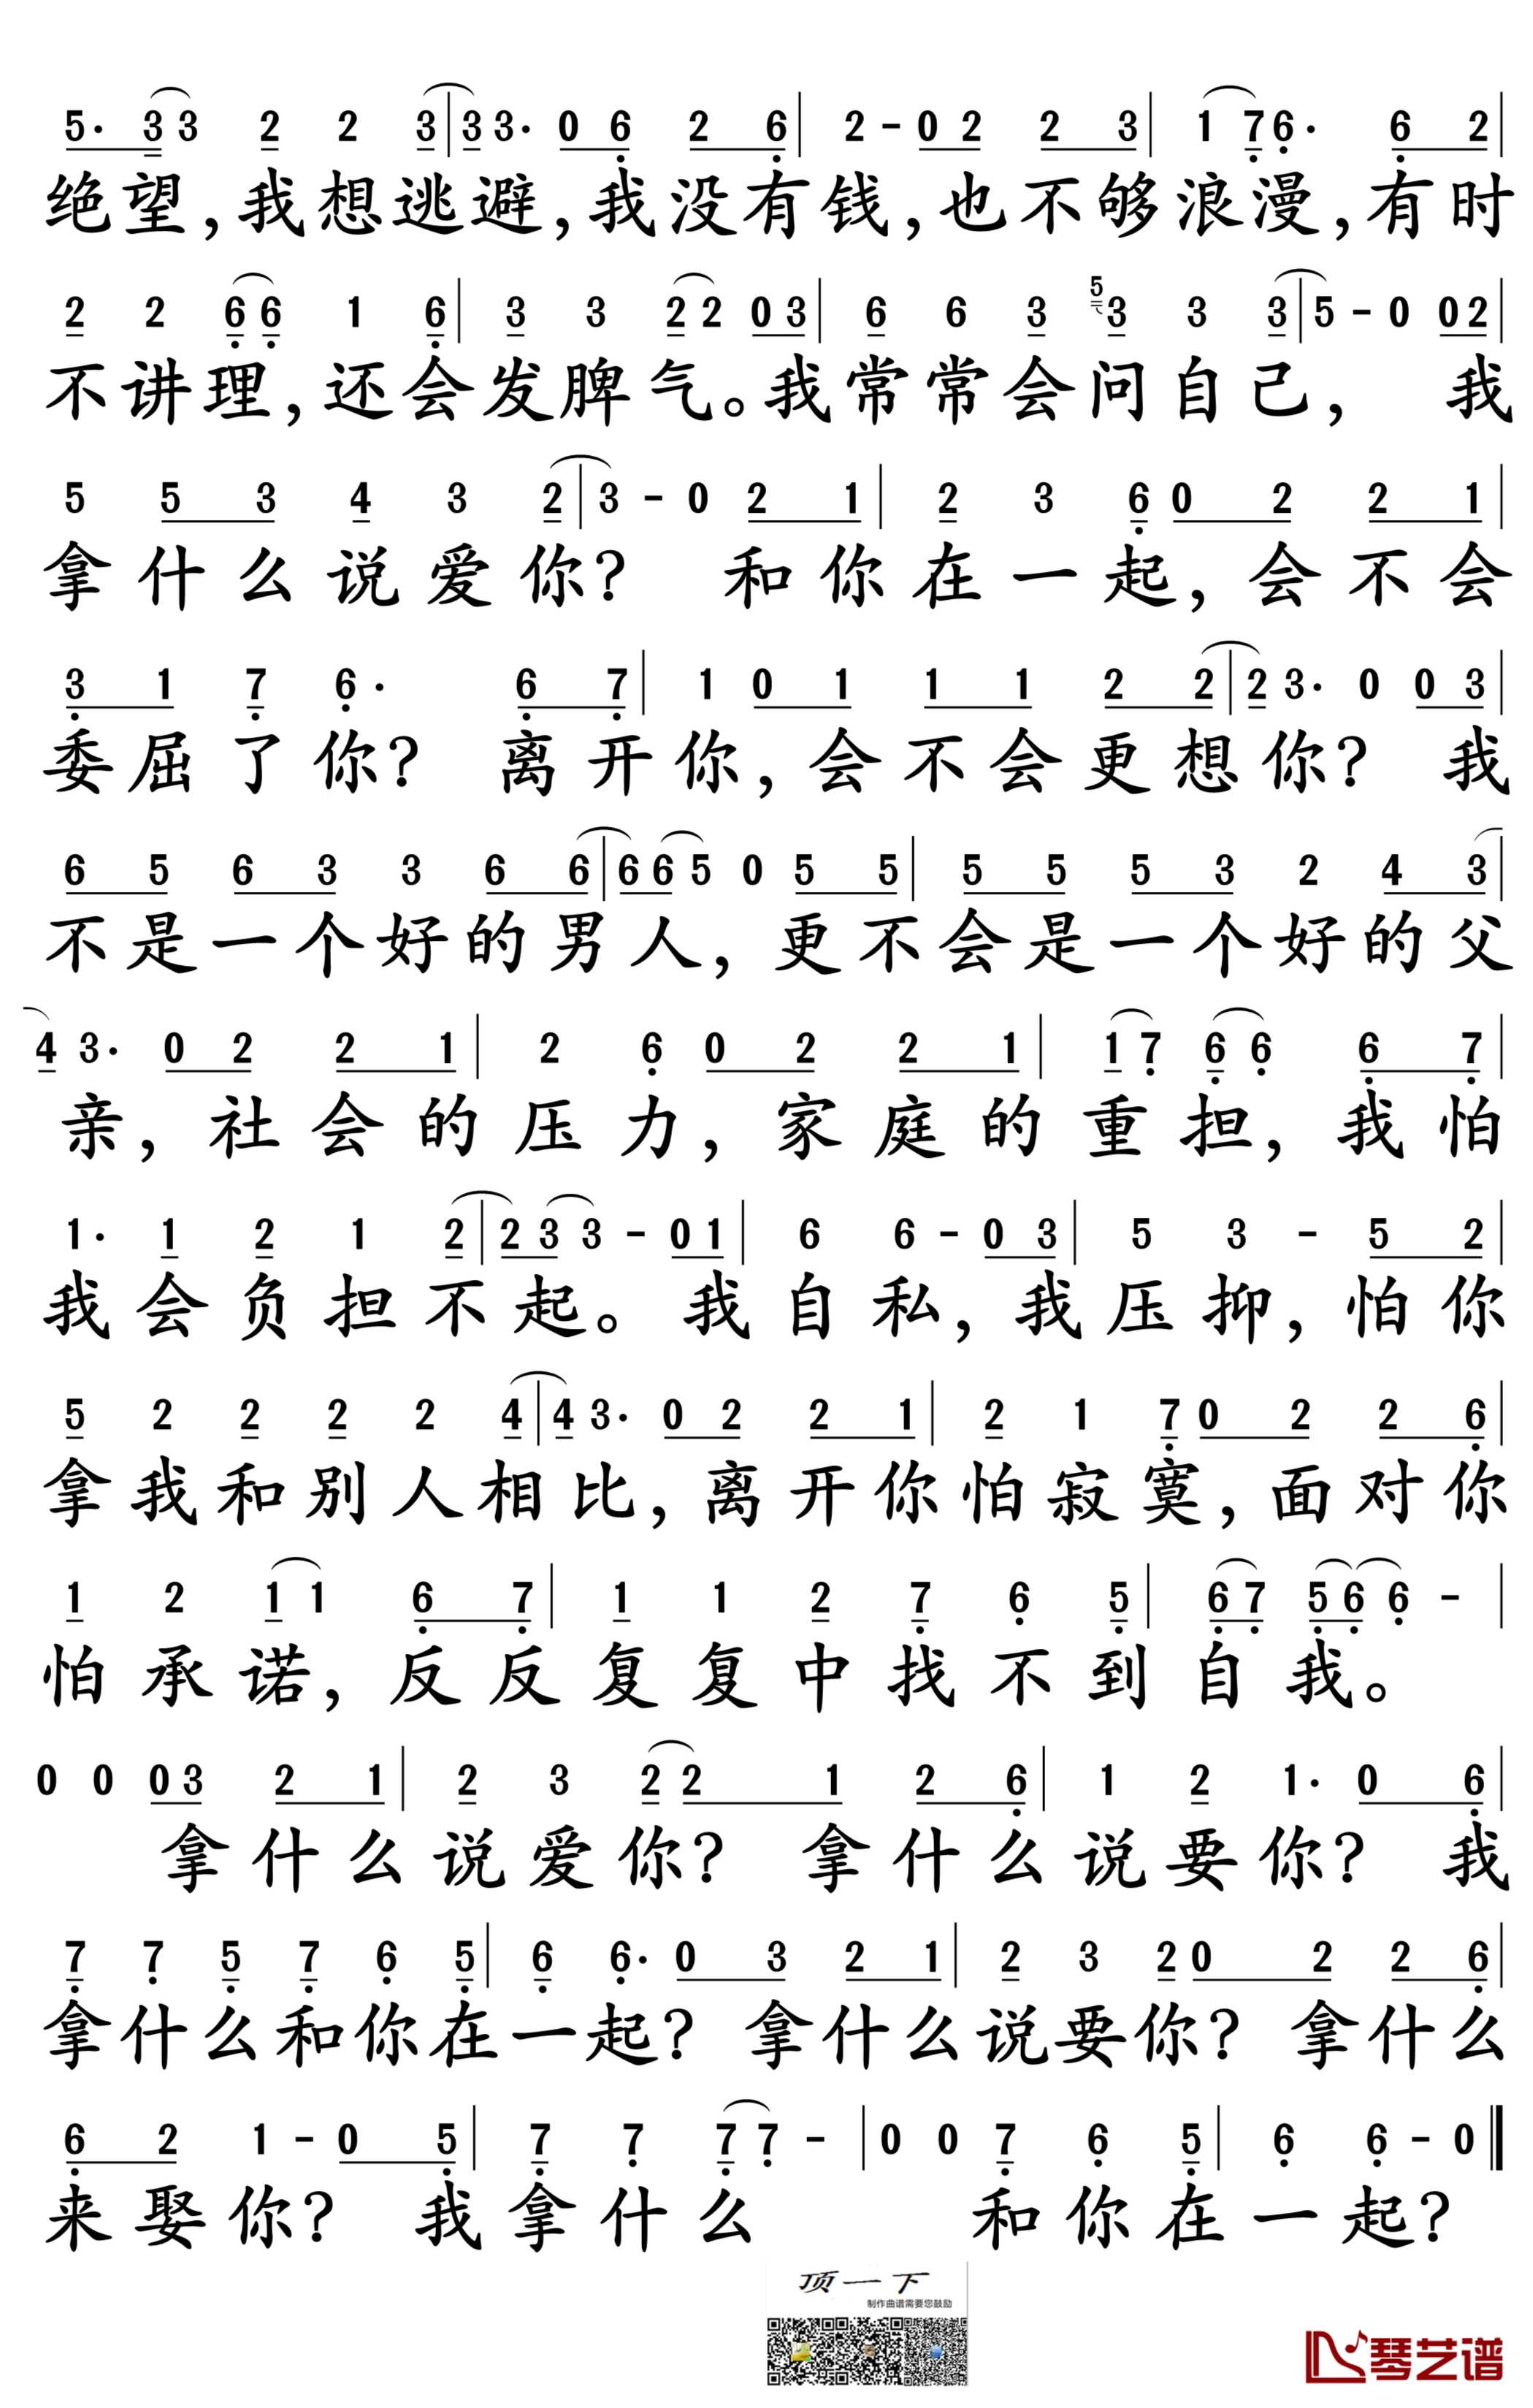 5· 3 3 2 2 3|3 3· 0 6 2 6|2 - 0 2 2 3|1 7 6· 6 2|
绝望,我想逃避,我没有钱,也不够浪漫,有时
2 2 6 6 1 6|3 3 2 2 0 3|6 6 3 5 3 3 3|5 - 0 0 2|
不讲理,还会发脾气。我常常会问自己, 我
5 5 3 4 3 2|3 - 0 2 1|2 3 6 0 2 2 1|
拿什么说爱你? 和你在一起,会不会
3 1 7 6· 6 7|1 0 1 1 1 2 2|2 3· 0 0 3|
委屈了你? 离开你,会不会更想你? 我
6 5 6 3 3 6 6|6 6 5 0 5 5|5 5 5 3 2 4 3|
不是一个好的男人,更不会是一个好的父
4 3· 0 2 2 1|2 6 0 2 2 1|1 7 6 6 6 7|
亲,社会的压力,家庭的重担,我怕
1· 1 2 1 2|2 3 3 - 0 1|6 6 - 0 3|5 3 - 5 2|
我会负担不起。我自私,我压抑,怕你
5 2 2 2 2 4|4 3· 0 2 2 1|2 1 7 0 2 2 6|
拿我和别人相比,离开你怕寂寞,面对你
1 2 1 1 6 7|1 1 2 7 6 5|6 7 5 6 6 - |
怕承诺,反反复复中找不到自我。
0 0 0 3 2 1|2 3 2 2 1 2 6|1 2 1· 0 6|
拿什么说爱你? 拿什么说要你? 我
7 7 5 7 6 5|6 6· 0 3 2 1|2 3 2 0 2 2 6|
拿什么和你在一起? 拿什么说要你? 拿什么
6 2 1 - 0 5|7 7 7 7 - |0 0 7 6 5|6 6 - 0‖
来娶你? 我拿什么 和你在一起?
顶一下
制作曲谱需要您鼓励
琴艺谱